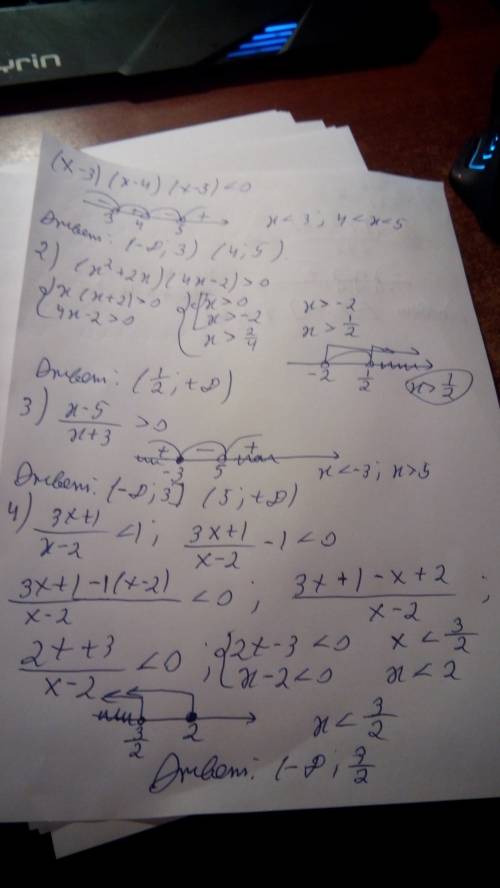 yrin
(x-3)(x-4)(x-5)<0
- + - +
3 4 5
x<3; 4<x<5
Ответ: (-∞; 3) (4; 5)
2) (x²+2x)(4x-2)>0
{x(x+2)>0 {x>0 x>-2
{4x-2>0 x>-2 x>1/2
x>2/4
-2 1/2 x>1/2
Ответ: (1/2; +∞)
3) x-5/x+3 >0
+ - +
-3 5
x<-3; x>5
Ответ: (-∞; 3] (5; +∞)
4) 3x+1/x-2 <1; 3x+1/x-2 -1<0
3x+1-1(x-2)/x-2 <0; 3x+1-x+2/x-2;
2x+3/x-2 <0; {2x-3<0 x<3/2
{x-2<0 x<2
3/2 2 x<3/2
Ответ: (-∞; 3/2